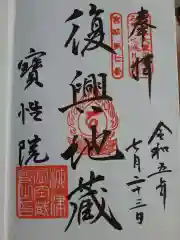 奉拝
復興地蔵
令和五年
七月二十三日
寶性院